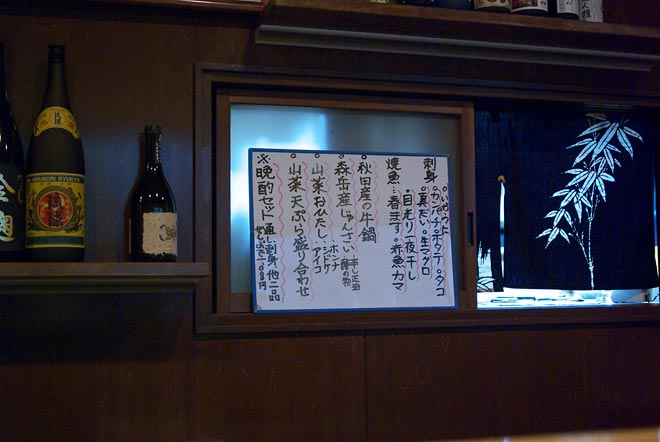 刺身
・いかうに
・カンパチ・ホタテ・タコ
・真だい・生マグロ
焼魚…春ます。赤魚カマ
目光り一夜干し
・秋田産の牛鍋
・森岳産じゅんさい
・山菜おひたし…
ホンナ
シドケ
アイコ
・山菜天ぷら盛り合わせ
※晩酌セット
通し刺身他二品
AWAMORI RYUKYU